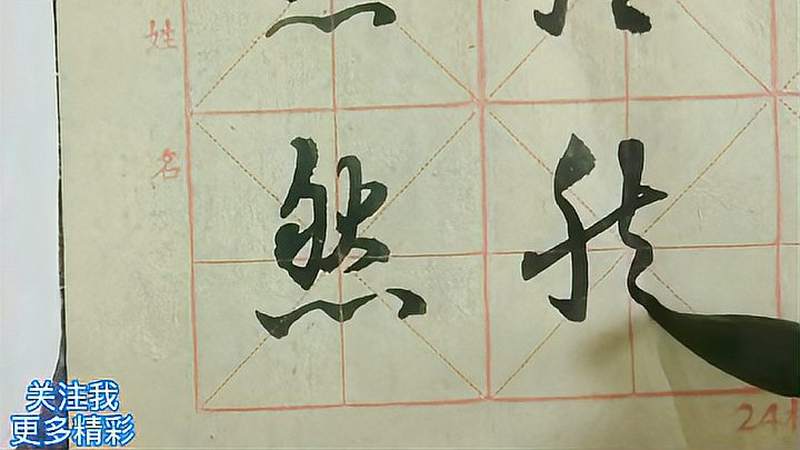 姓
名
然
24
关注我
更多精彩